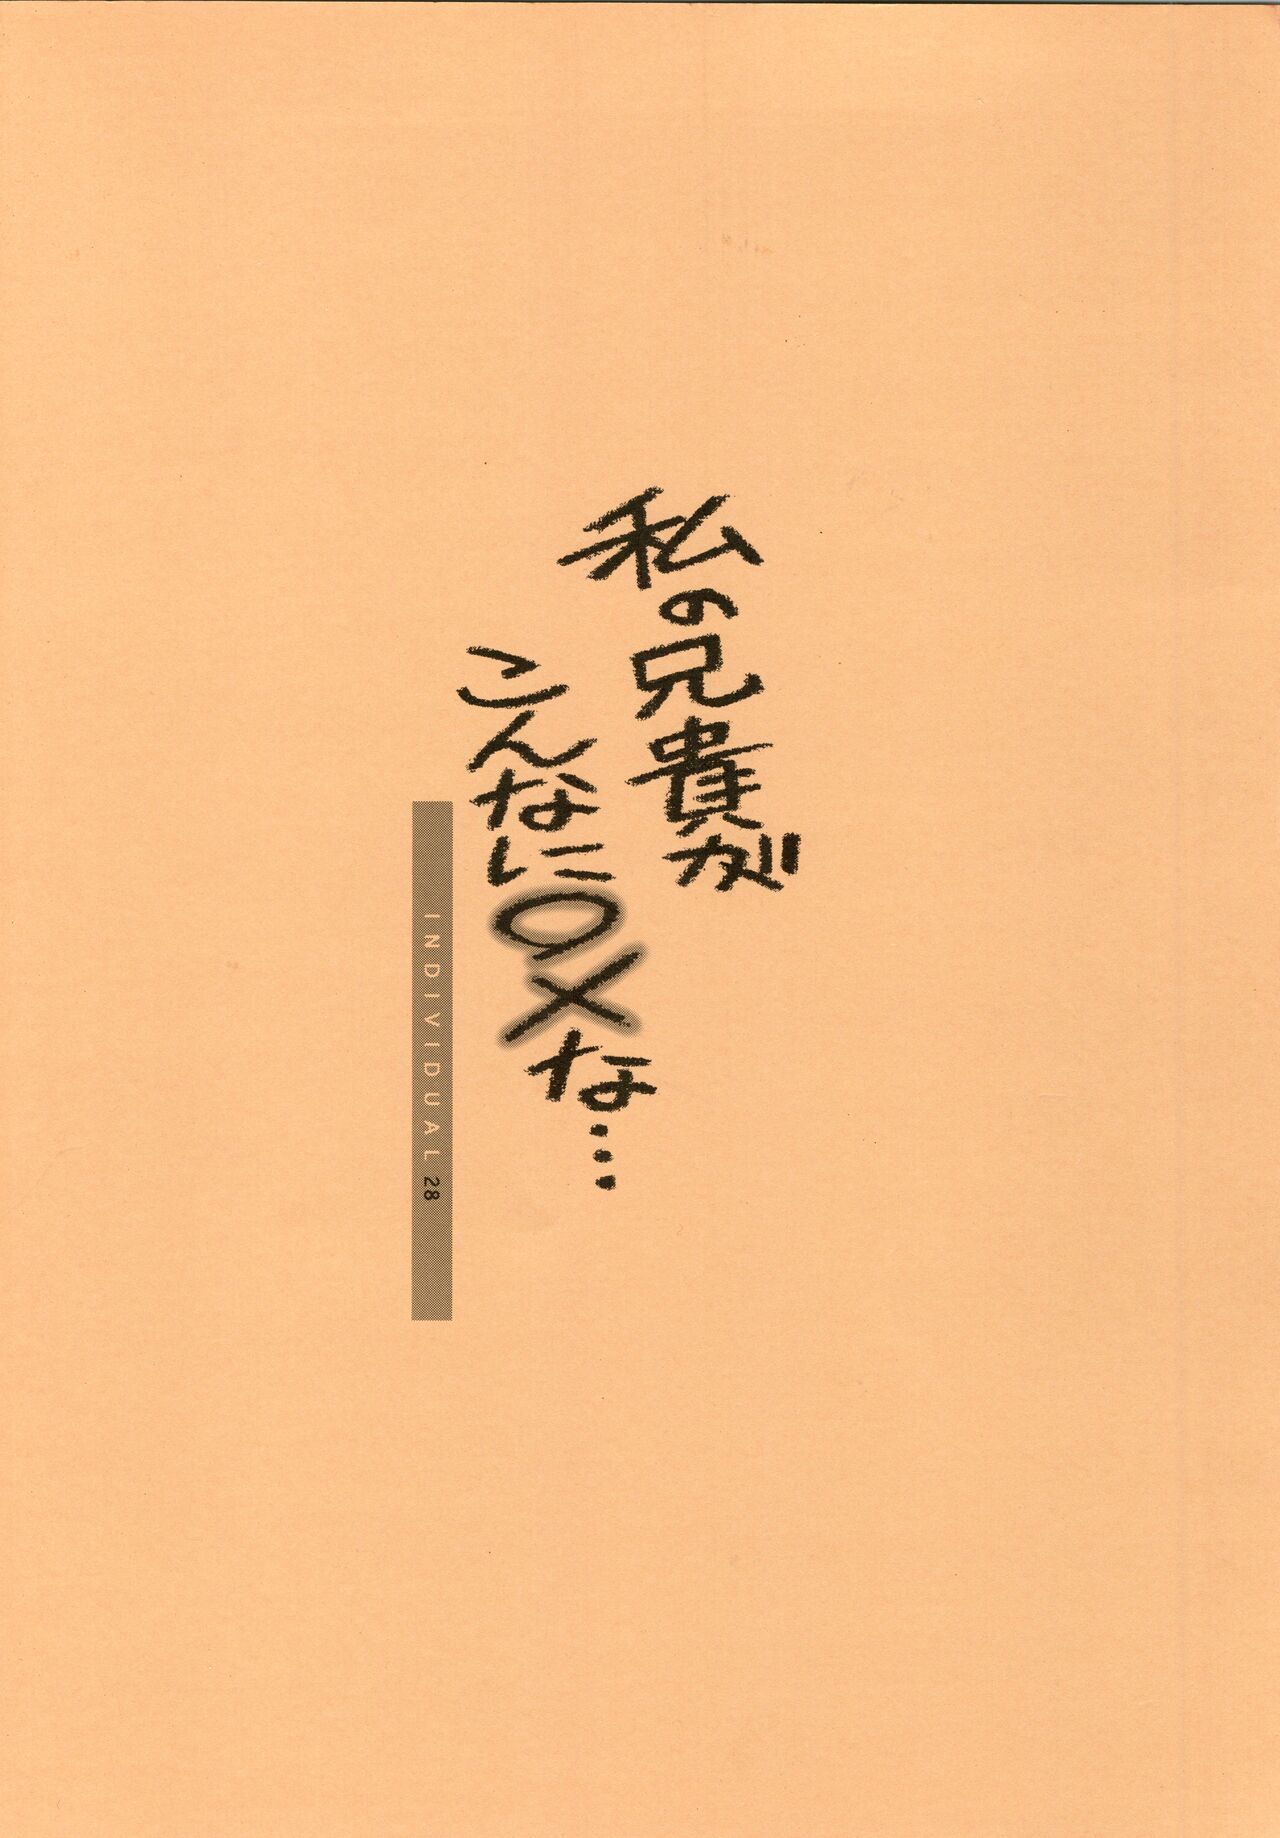 私の兄貴が
こんなに〇×な…
INDIVIDUAL 28